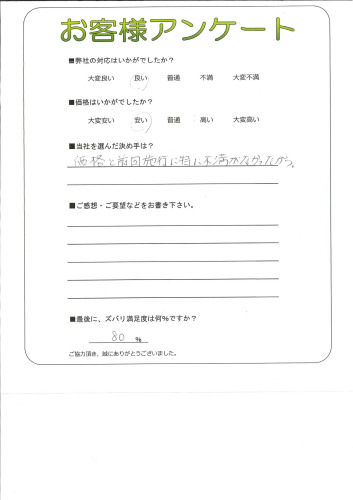 お客様アンケート
■弊社の対応はいかがでしたか?
大変良い 良い 普通 不満 大変不満
■価格はいかがでしたか?
大変安い 安い 普通 高い 大変高い
■当社を選んだ決め手は?
価格と前回施行に特に不満がなかったから。
■ご感想・ご要望などをお書き下さい。
■最後に、ズバリ満足度は何%ですか?
80 %
ご協力頂き、誠にありがとうございました。